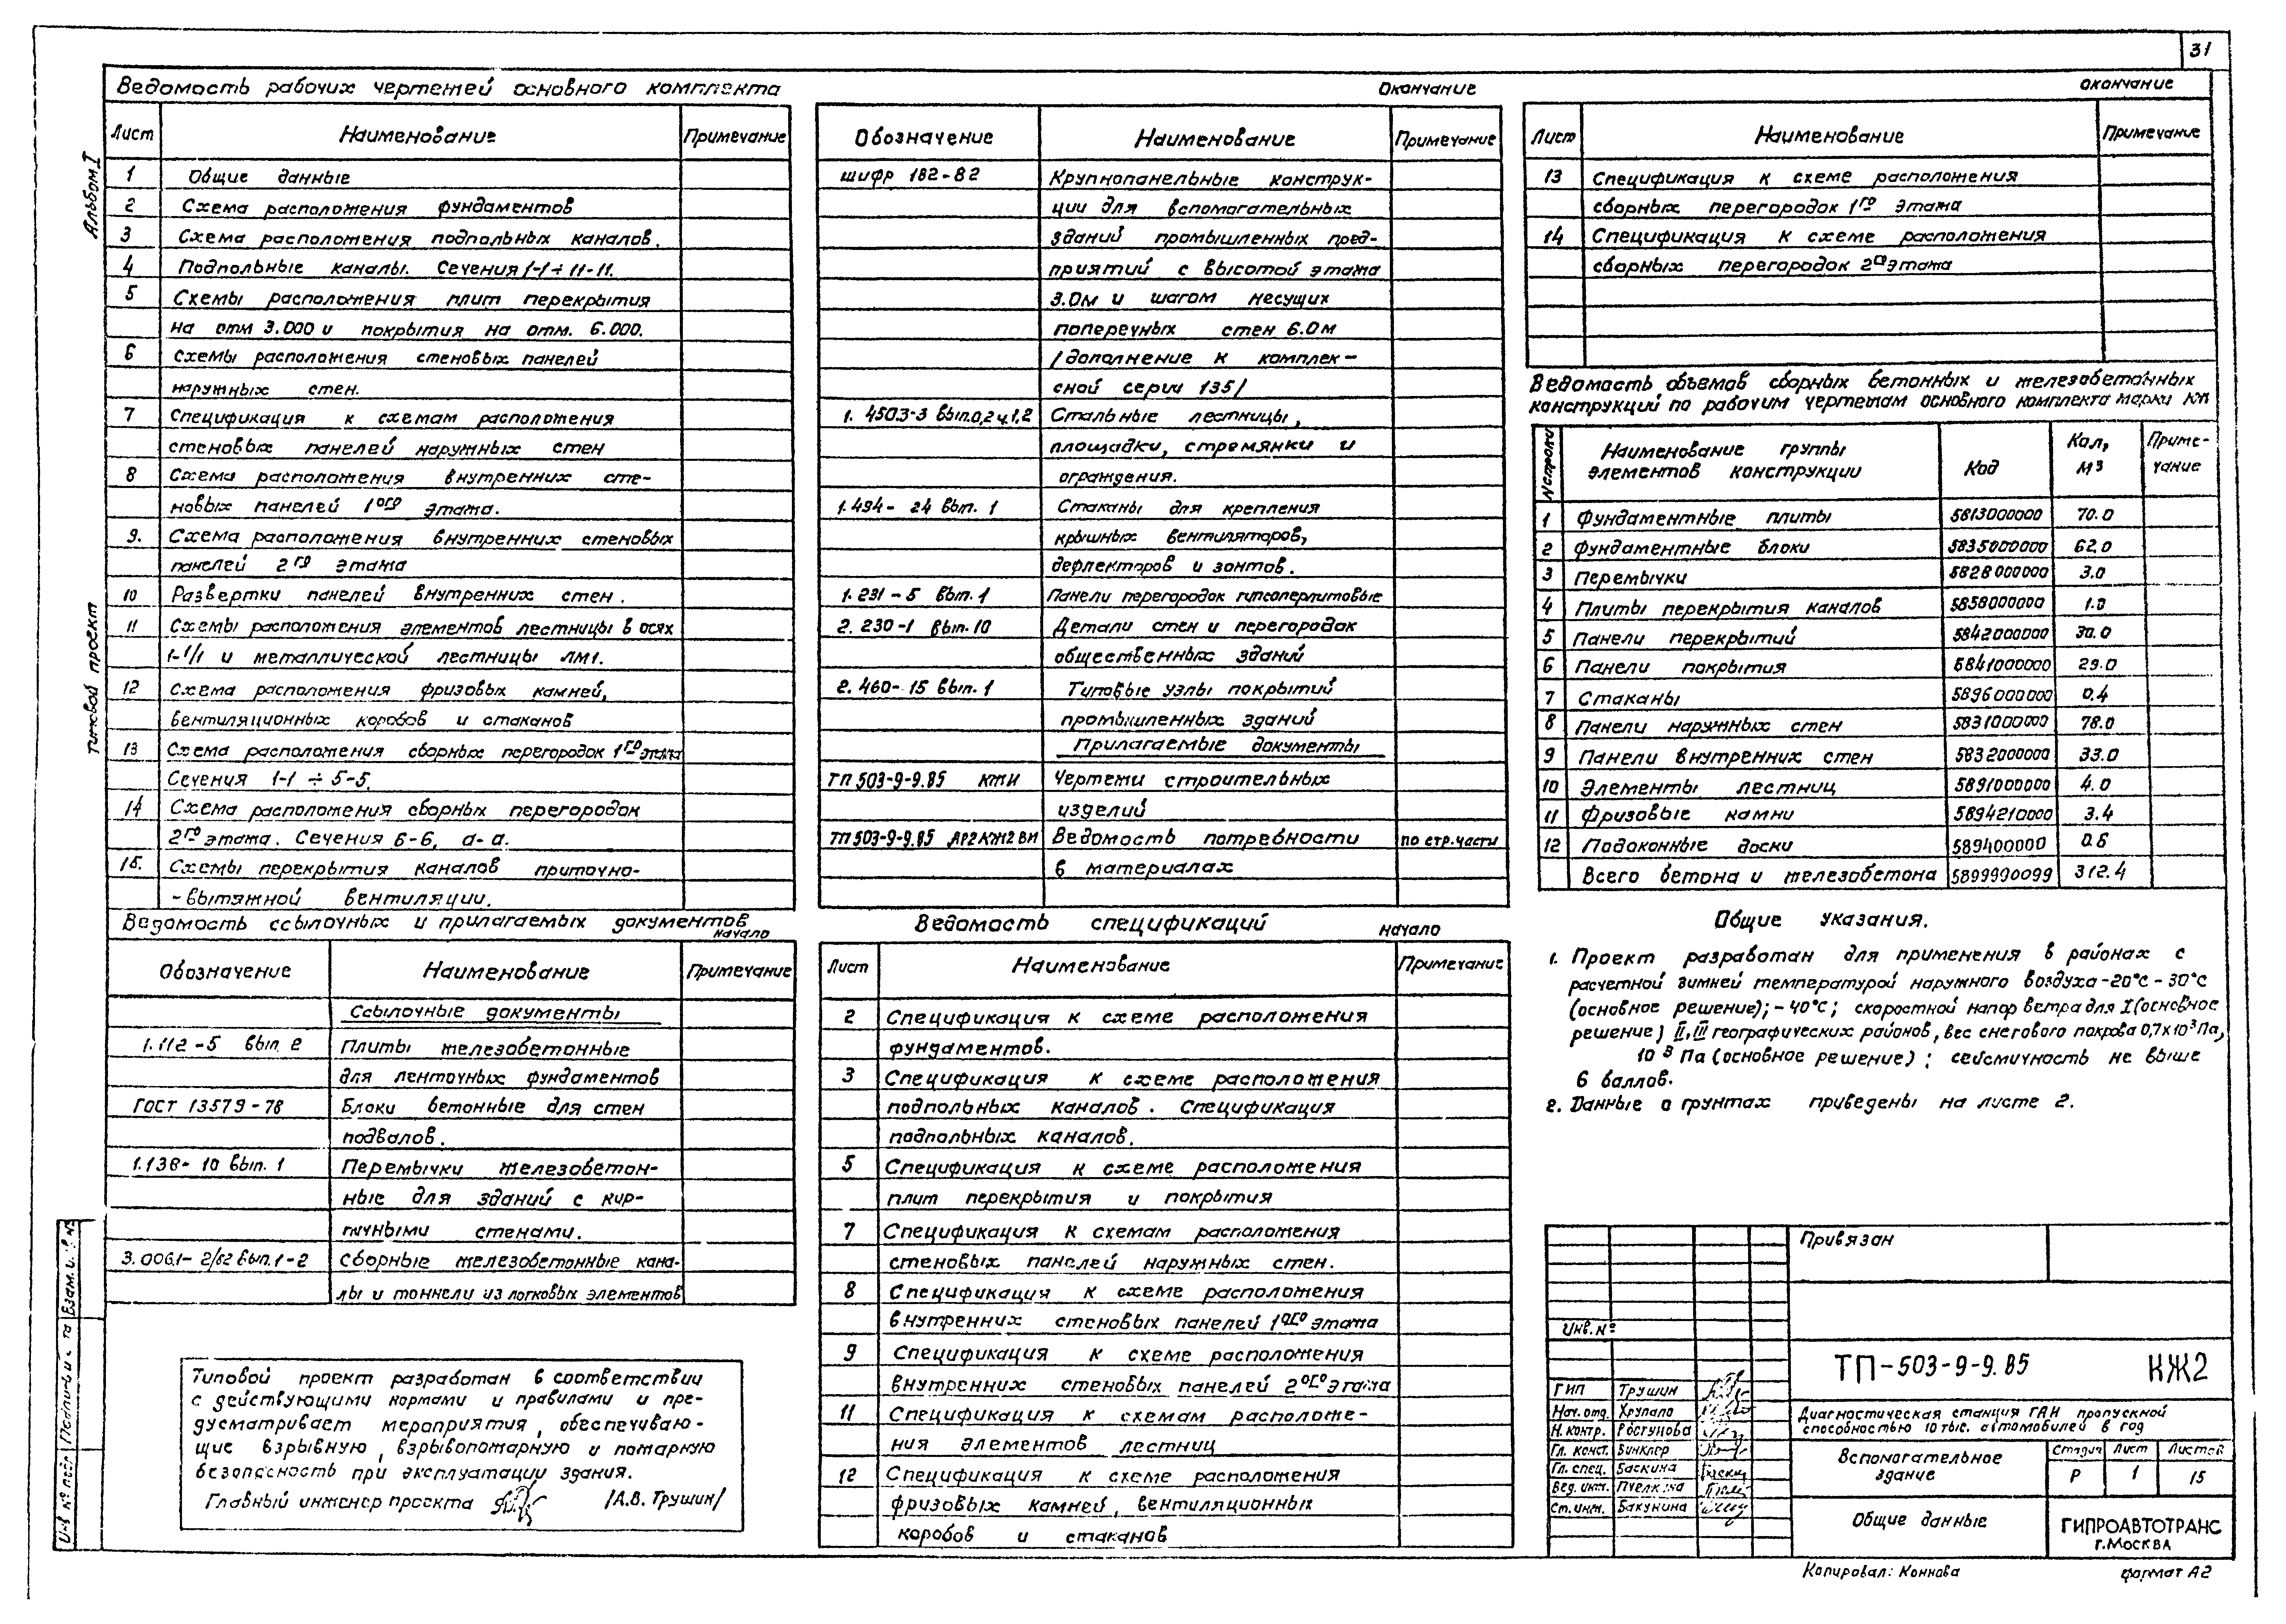 31
Альбом I
Типовой проект
Ведомость рабочих чертежей основного комплекта
Лист Наименование Примечание
1 Общие данные
2 Схема расположения фундаментов
3 Схема расположения подпольных каналов.
4 Подпольные каналы. Сечения 1-1 ÷ 11-11.
5 Схемы расположения плит перекрытия
на отм 3.000 и покрытия на отм. 6.000.
6 Схемы расположения стеновых панелей
наружных стен.
7 Спецификация к схемам расположения
стеновых панелей наружных стен
8 Схема расположения внутренних сте-
новых панелей 1ого этажа.
9. Схема расположения внутренних стеновых
панелей 2го этажа
10 Развертки панелей внутренних стен.
11 Схемы расположения элементов лестницы в осях
1-1/1 и металлической лестницы ЛМ1.
12 Схема расположения фризовых камней,
вентиляционных коробов и стаканов
13 Схема расположения сборных перегородок 1го этажа
Сечения 1-1 ÷ 5-5.
14 Схема расположения сборных перегородок
2го этажа. Сечения 6-6, а-а.
15. Схемы перекрытия каналов приточно-
-вытяжной вентиляции.
Ведомость ссылочных и прилагаемых документов
начало
Обозначение Наименование Примечание
Ссылочные документы
1.112-5 вып. 2 Плиты железобетонные
для ленточных фундаментов
ГОСТ 13579-78 Блоки бетонные для стен
подвалов.
1.138-10 вып. 1 Перемычки железобетон-
ные для зданий с кир-
пичными стенами.
3.006.1-2/82 вып. 1-2 Сборные железобетонные кана-
лы и тоннели из лотковых элементов
Типовой проект разработан в соответствии
с действующими нормами и правилами и пре-
дусматривает мероприятия, обеспечиваю-
щие взрывную, взрывопожарную и пожарную
безопасность при эксплуатации здания.
Главный инженер проекта /А.В. Трушин/
Окончание
Обозначение Наименование Примечание
шифр 182-82 Крупнопанельные конструк-
ции для вспомогательных
зданий промышленных пред-
приятий с высотой этажа
3.0м и шагом несущих
поперечных стен 6.0м
/дополнение к комплек-
сной серии 135/
1.450.3-3 вып.0,2 ч.1,2 Стальные лестницы,
площадки, стремянки и
ограждения.
1.494-24 вып. 1 Стаканы для крепления
крышных вентиляторов,
дефлекторов и зонтов.
1.231-5 вып. 1 Панели перегородок гипсоперлитовые
2.230-1 вып. 10 Детали стен и перегородок
общественных зданий
2.460-15 вып. 1 Типовые узлы покрытий
промышленных зданий
Прилагаемые документы
ТП 503-9-9.85 КЖИ Чертежи строительных
изделий
ТП 503-9-9.85 АР2 КЖ2 ВМ Ведомость потребности по стр. части
в материалах
Ведомость спецификаций
начало
Лист Наименование Примечание
2 Спецификация к схеме расположения
фундаментов.
3 Спецификация к схеме расположения
подпольных каналов. Спецификация
подпольных каналов.
5 Спецификация к схеме расположения
плит перекрытия и покрытия
7 Спецификация к схемам расположения
стеновых панелей наружных стен.
8 Спецификация к схеме расположения
внутренних стеновых панелей 1ого этажа
9 Спецификация к схеме расположения
внутренних стеновых панелей 2ого этажа
11 Спецификация к схемам расположе-
ния элементов лестниц
12 Спецификация к схеме расположения
фризовых камней, вентиляционных
коробов и стаканов
окончание
Лист Наименование Примечание
13 Спецификация к схеме расположения
сборных перегородок 1го этажа
14 Спецификация к схеме расположения
сборных перегородок 2го этажа
Ведомость объемов сборных бетонных и железобетонных
конструкций по рабочим чертежам основного комплекта марки КЖ
№ строки Наименование группы элементов конструкции Код Кол, м3 Приме-чание
1 Фундаментные плиты 5813000000 70.0
2 Фундаментные блоки 5835000000 62.0
3 Перемычки 5828000000 3.0
4 Плиты перекрытия каналов 5858000000 1.0
5 Панели перекрытий 5842000000 30.0
6 Панели покрытия 5841000000 29.0
7 Стаканы 5896000000 0.4
8 Панели наружных стен 5831000000 78.0
9 Панели внутренних стен 5832000000 33.0
10 Элементы лестниц 5891000000 4.0
11 Фризовые камни 5894210000 3.4
12 Подоконные доски 589400000 0.6
Всего бетона и железобетона 5899990099 312.4
Общие указания.
1. Проект разработан для применения в районах с
расчетной зимней температурой наружного воздуха -20°С -30°С
(основное решение); -40°С; скоростной напор ветра для I (основное
решение) II, III географических районов, вес снегового покрова 0,7х10³Па,
10³ Па (основное решение); сейсмичность не выше
6 баллов.
2. Данные о грунтах приведены на листе 2.
Привязан
Инв. №
ТП-503-9-9.85 КЖ2
ГИП Трушин
Нач. отд. Хрупало
Н. контр. Ростунова
Гл. конст. Винклер
Гл. спец. Баскина
Вед. инж. Пчелкина
Ст. инж. Бакунина
Диагностическая станция ГАИ пропускной
способностью 10 тыс. автомобилей в год
Вспомогательное
здание
Стадия Лист Листов
Р 1 15
Общие данные
ГИПРОАВТОТРАНС
г. Москва
Копировал: Коннова формат А2